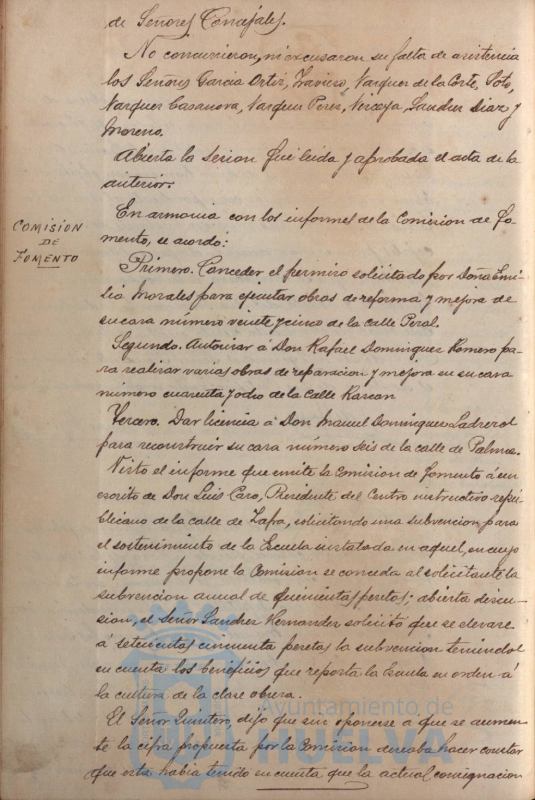 de Señores Concejales.
No concurrieron, ni excusaron su falta de asistencia
los Señores Garcia Ortiz, Traviero, Vazquez de la Corte, Soto,
Vazquez Casanova, Vazquez Perez, Sanchez Diaz y
Moreno.
Abierta la sesion fue leida y aprobada el acta de la
anterior.
En armonia con los informes de la Comision de Fo-
mento, se acordó:
COMISION
DE
FOMENTO
Primero. Conceder el permiso solicitado por Doña Emi-
lia Morales para ejecutar obras de reforma y mejora de
su casa número veinte y cinco de la calle Peral.
Segundo. Autorizar á Don Rafael Dominguez Romero pa-
ra realizar varias obras de reparacion y mejora en su casa
número cuarenta y ocho de la calle Rascon
Tercero. Dar licencia á Don Manuel Dominguez Ladrerol
para reconstruir su casa número seis de la calle de Palma.
Visto el informe que emite la Comision de Fomento á un
escrito de Don Luis Caro, Presidente del Centro instructivo repu-
blicano de la calle de Zafra, solicitando una subvencion para
el sostenimiento de la Escuela instalada en aquel, en cuyo
informe propone la Comision se conceda al solicitante la
subvencion anual de quinientas pesetas; abierta discu-
sion, el Señor Sanchez Hernandez solicitó que se elevase
á setecientas cincuenta pesetas la subvencion teniendose
en cuenta los beneficios que reporta la Escuela en orden á
la cultura de la clase obrera.
El Señor Quintero, dijo que sin oponerse a que se aumen-
te la cifra propuesta por la Comision deseaba hacer constar
que esta habia tenido en cuenta que la actual consignacion
Ayuntamiento de
HUELVA